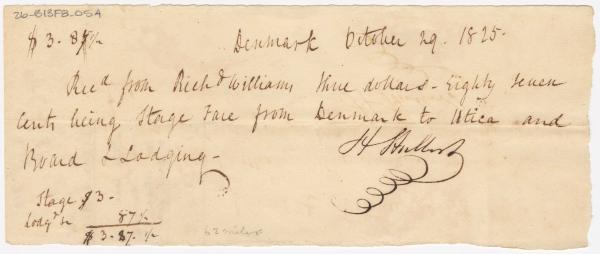 26-B13F8-05A
$3-87½ Denmark October 29. 1825-
Recd from Richd Williams three dollars-Eighty seven
Cents being Stage Fare from Denmark to Utica and
Board & Lodging-
H Hulbert
Stage $3-
Lodgg &c 87½
$3-87.½
62 miles